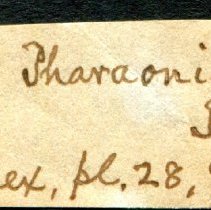 Pharaoni
ex, pl. 28,